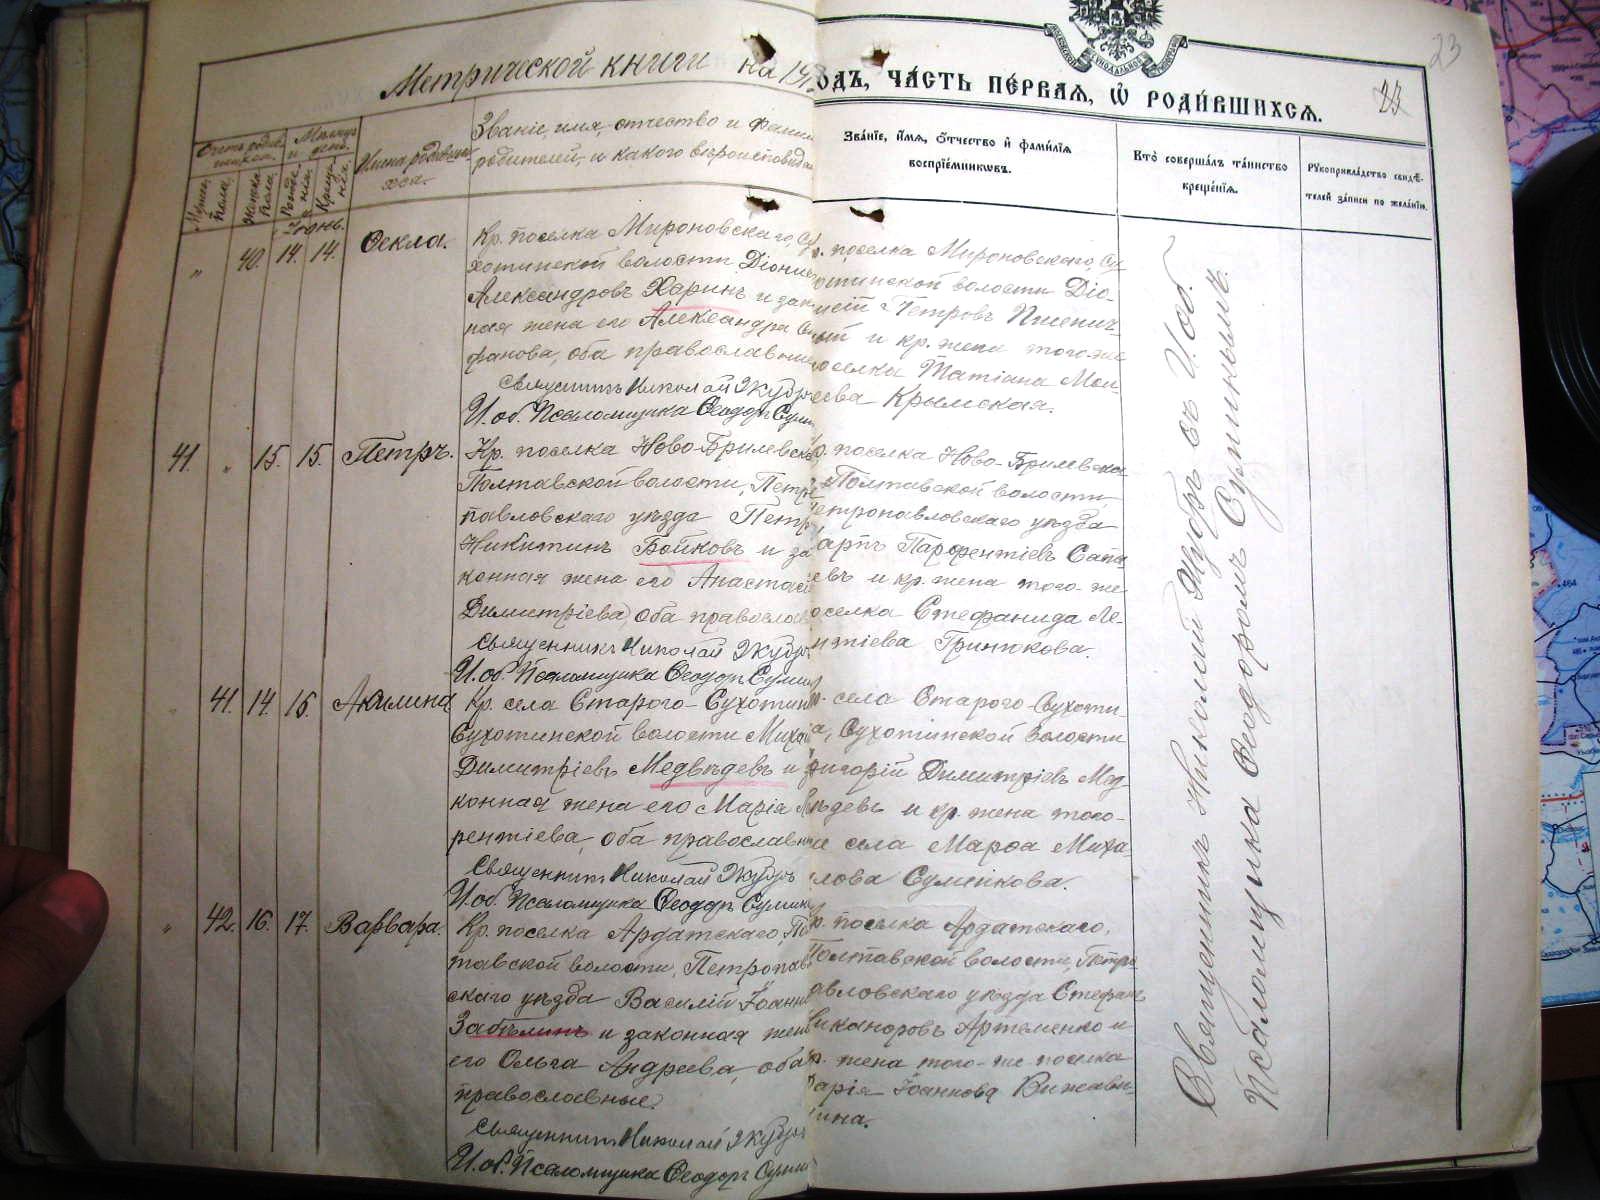 Метрической книги на 19
одъ, часть первая, ѡ родившихся.
23
Счетъ родив-
шихся.
Мѣсяцъ
и день.
Мужеска
пола.
Женска
пола.
Рожде-
нія.
Креще-
нія.
Имена родивших-
ся.
Званіе, имя, отчество и фамил
родителей, и какого вѣроисповѣда
Званіе, имя, отчество и фамилія
воспріемниковъ.
Кто совершалъ таинство
крещенія.
Рукоприкладство свидѣ-
телей записи по желанію.
Іюнь.
" 40. 14. 14. Ѳекла.
Кр. поселка Мироновскаго, Су
хотинской волости Діонис
Александровъ Харинъ и зак
ная жена его Александра
фанова, оба православные
Священникъ Николай Якубъ
И. об. Псаломщика Ѳеодоръ Сумин
. поселка Мироновскаго, Су
отинской волости Діо-
исій Петровъ Пшенич
ый и кр. жена того-же
оселка Татіана Мои-
еева Крымская.
41. " 15. 15. Петръ.
Кр. поселка Ново-Брилевск
Полтавской волости, Петро
павловскаго уѣзда Петръ
Никитинъ Бойковъ и за
конная жена его Анастасі
Димитріева, оба православ
Священникъ Николай Якубъ
И. об. Псаломщика Ѳеодоръ Сумин
р. поселка Ново-Брилевска
Полтавской волости
етропавловскаго уѣзда
арпъ Парфентіевъ Сапа
евъ и кр. жена того-же
оселка Стефанида Ле-
нтіева Гринюкова.
" 41. 14. 15. Акилина
Кр. села Старого-Сухотин
Сухотинской волости Миха
Димитріевъ Медвѣдевъ и
конная жена его Марія
рентіева, оба православн
Священникъ Николай Якубъ
И. об. Псаломщика Ѳеодоръ Сумин
р. села Старого-Сухоти-
а, Сухотинской волости
ригорій Димитріевъ Мед-
вѣдевъ и кр. жена того-
е села Марѳа Миха-
лова Сумикова.
" 42. 16. 17. Варвара.
Кр. поселка Ардатскаго, По
тавской волости, Петропав
скаго уѣзда Василій Іоанн
Забѣлинъ и законная жен
его Ольга Андреева, оба
православные.
Священникъ Николай Якубъ
И. об. Псаломщика Ѳеодоръ Сумин
р. поселка Ардатскаго,
Полтавской волости, Петро
авловскаго уѣзда Стефанъ
иканоровъ Артеменко и
р. жена того-же поселка
арія Іоаннова
ина.
Священникъ Николай Якубъ съ И. об.
Псаломщика Ѳеодоромъ Суминымъ.